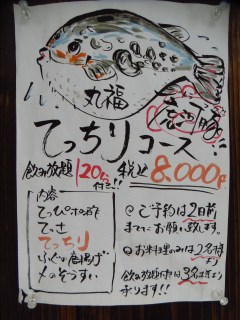 丸福
てっちりコース
飲み放題 120分付!! 税込 8,000円
内容
てっぴポン酢
てっさ
てっちり
ふぐの唐揚げ
〆のぞうすい
◎ご予約は2日前
までにお願い致します。
◎お料理のみは2名様より
飲み放題付は3名様より
承ります!!